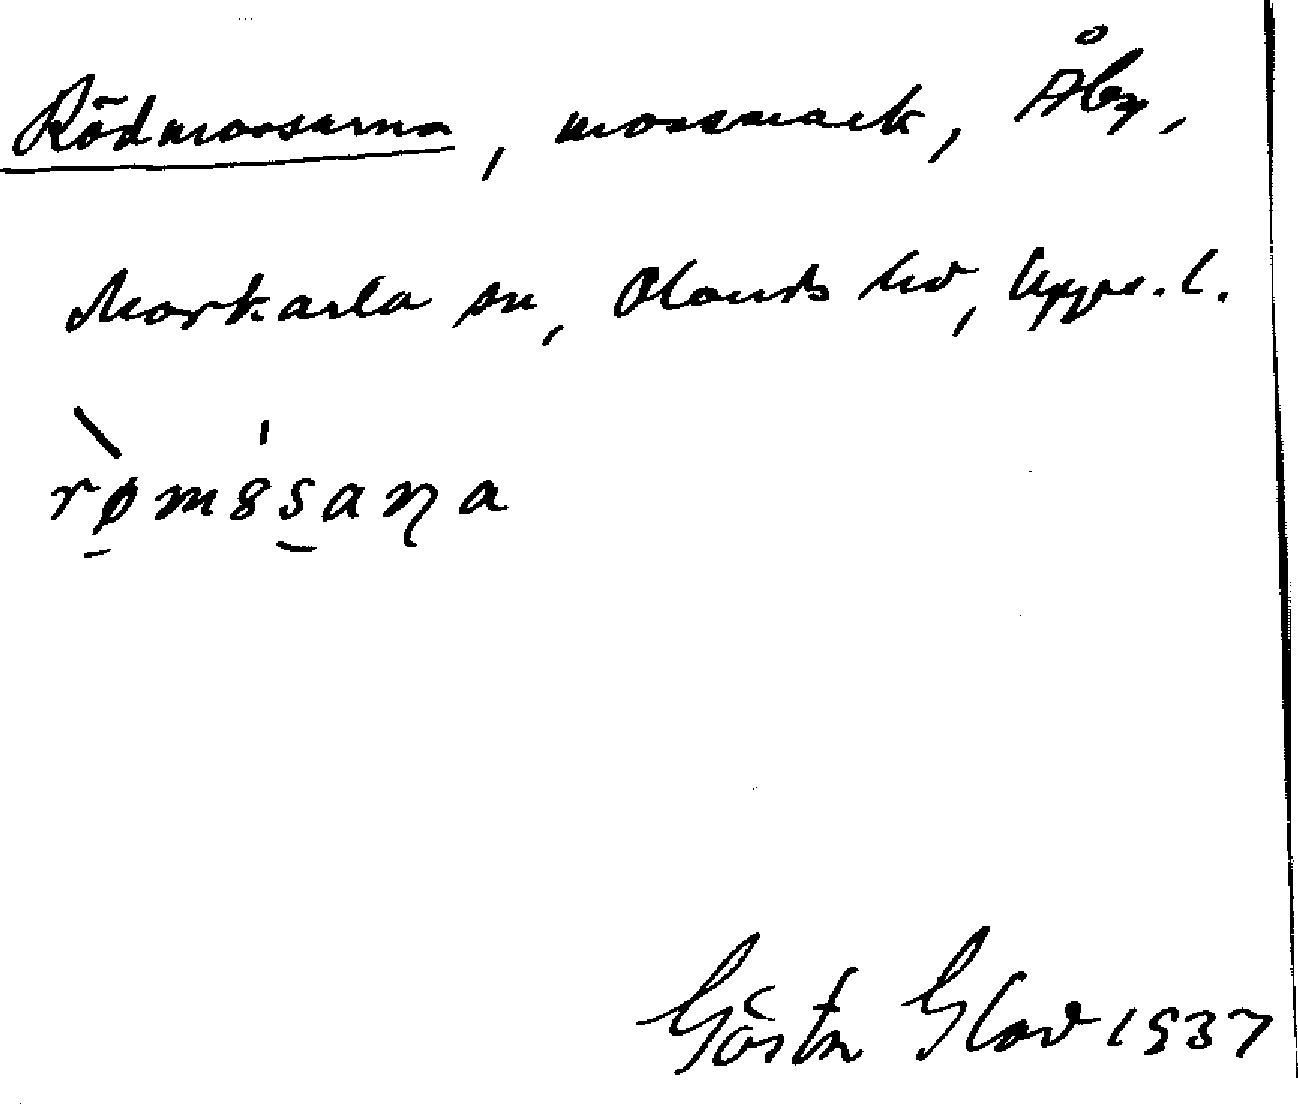 Rödmossarna, mossmark, Åby,
Morkarla sn, Olands hd, Upps. l.
rømꝏsaɳa
Gösta Glad 1937